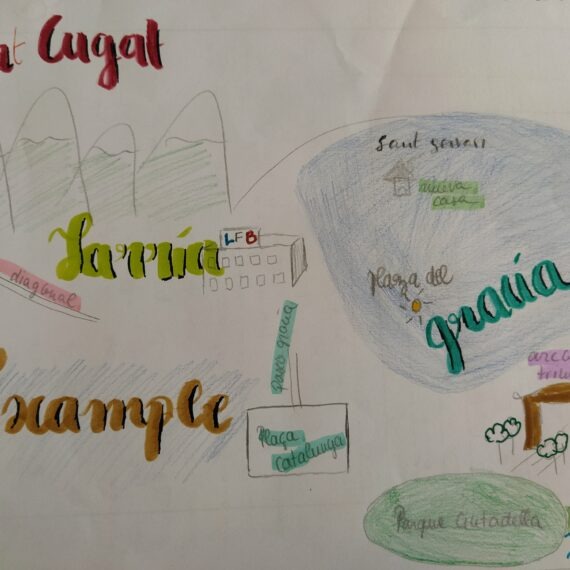 nt Cugat
Sant Gervasi
nueva
casa
LFB
Sarria
diagonal
plaza del
gracia
paseo gracia
arco
triun
Example
Plaça
Catalunya
Parque Ciutadella